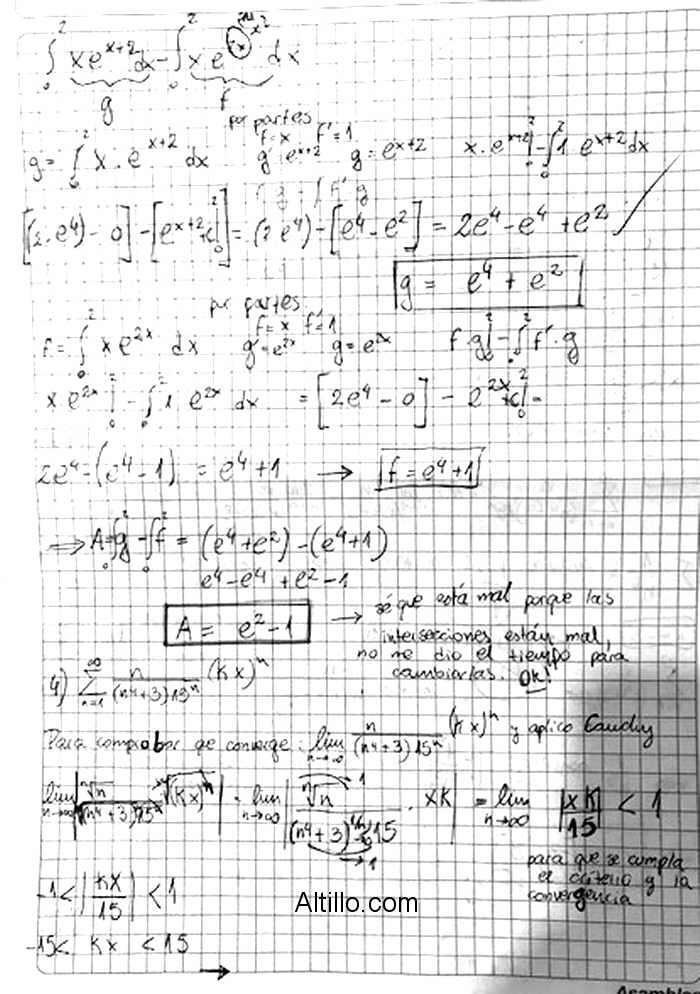 ∫₀² x e^(x+2) dx − ∫₀² x e^(2x) dx
g f
por partes
g = ∫₀² x · e^(x+2) dx f = x f' = 1 g' e^(x+2) g = e^(x+2) x · e^(x+2)|₀² − ∫₀² 1 e^(x+2) dx
[(2 · e⁴) − 0] − [e^(x+2) + c|₀²] = (2 e⁴) − [e⁴ − e²] = 2e⁴ − e⁴ + e²
g = e⁴ + e²
por partes
f = ∫₀² x e^(2x) dx f = x f' = 1 g' = e^(2x) g = e^(2x) f · g|₀² − ∫₀² f' · g
x e^(2x)|₀² − ∫₀² 1 e^(2x) dx = [2e⁴ − 0] − e^(2x) + c|₀² =
2e⁴ − (e⁴ − 1) = e⁴ + 1 → f = e⁴ + 1
⇒ A = ∫₀² g − ∫₀² f = (e⁴ + e²) − (e⁴ + 1)
e⁴ − e⁴ + e² − 1
A = e² − 1 → sé que está mal porque las
intersecciones están mal,
no me dio el tiempo para
cambiarlas. OK!
4) ∑ₙ₌₁^∞ n/((n⁴+3)15ⁿ) (Kx)ⁿ
Para comprobar qe converge: lim n→∞ n/((n⁴+3)15ⁿ) (Kx)ⁿ y aplico Cauchy
lim n→∞ |ⁿ√n / ⁿ√((n⁴+3)15ⁿ) · ⁿ√(Kx)ⁿ| = lim n→∞ |ⁿ√n / ((n⁴+3)^(1/n) 15) · xK| = lim n→∞ |xK/15| < 1
para que se cumpla
el criterio y la
convergencia
−1 < |Kx/15| < 1
−15 < Kx < 15
→
Altillo.com